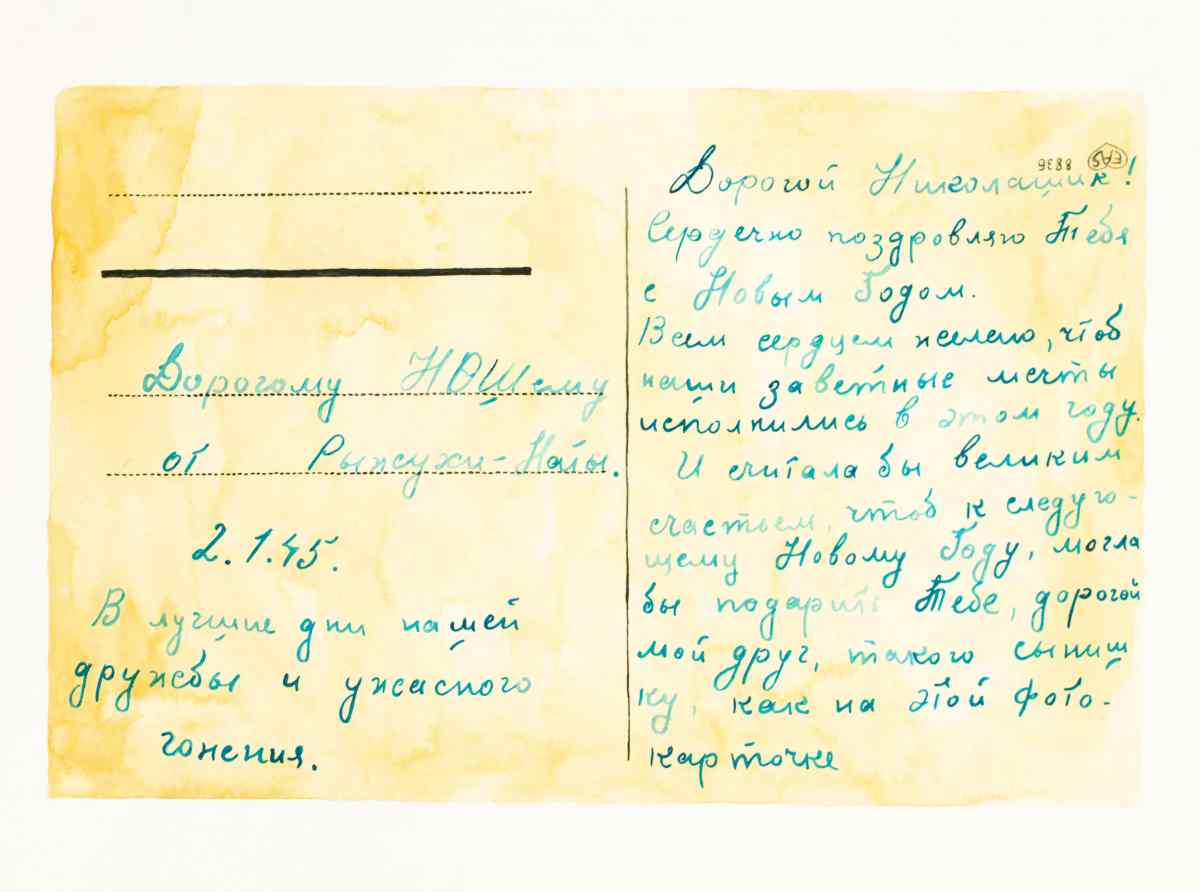 Дорогому НОШему
от Рыжухи-Наты.
2.1.45.
В лучшие дни нашей
дружбы и ужасного
гонения.
EAS 8836
Дорогой Николашик!
Сердечно поздровляю Тебя
с Новым Годом.
Всем сердцем желаю, чтоб
наши заветные мечты
исполнились в этом году.
И считала бы великим
счастьем, чтоб к следую-
щему Новому Году, могла
бы подарить Тебе, дорогой
мой друг, такого сыниш
ку, как на этой фото-
карточке